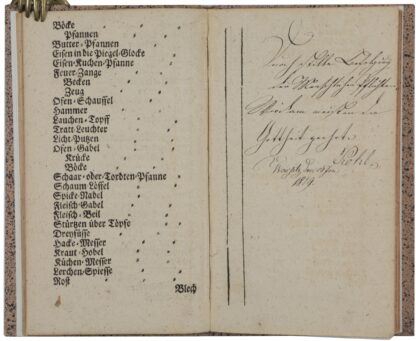 Böcke
Pfannen
Butter-Pfannen
Eisen in die Piegel-Glocke
Eisen-Kuchen-Pfanne
Feuer-Zange
Becken
Zeug
Ofen-Schauffel
Hammer
Lauchen-Topff
Tratt Leuchter
Licht-Putzen
Ofen-Gabel
Krücke
Böcke
Schaar-oder-Tordten-Pfanne
Schaum Löffel
Spicke-Nadel
Fleisch-Gabel
Fleisch-Beil
Stürtzen über Töpfe
Dreyfüsse
Hacke-Messer
Kraut-Hobel
Küchen-Messer
Lerchen-Spiesse
Rost
Blech
Durch stille
der
Gottheit